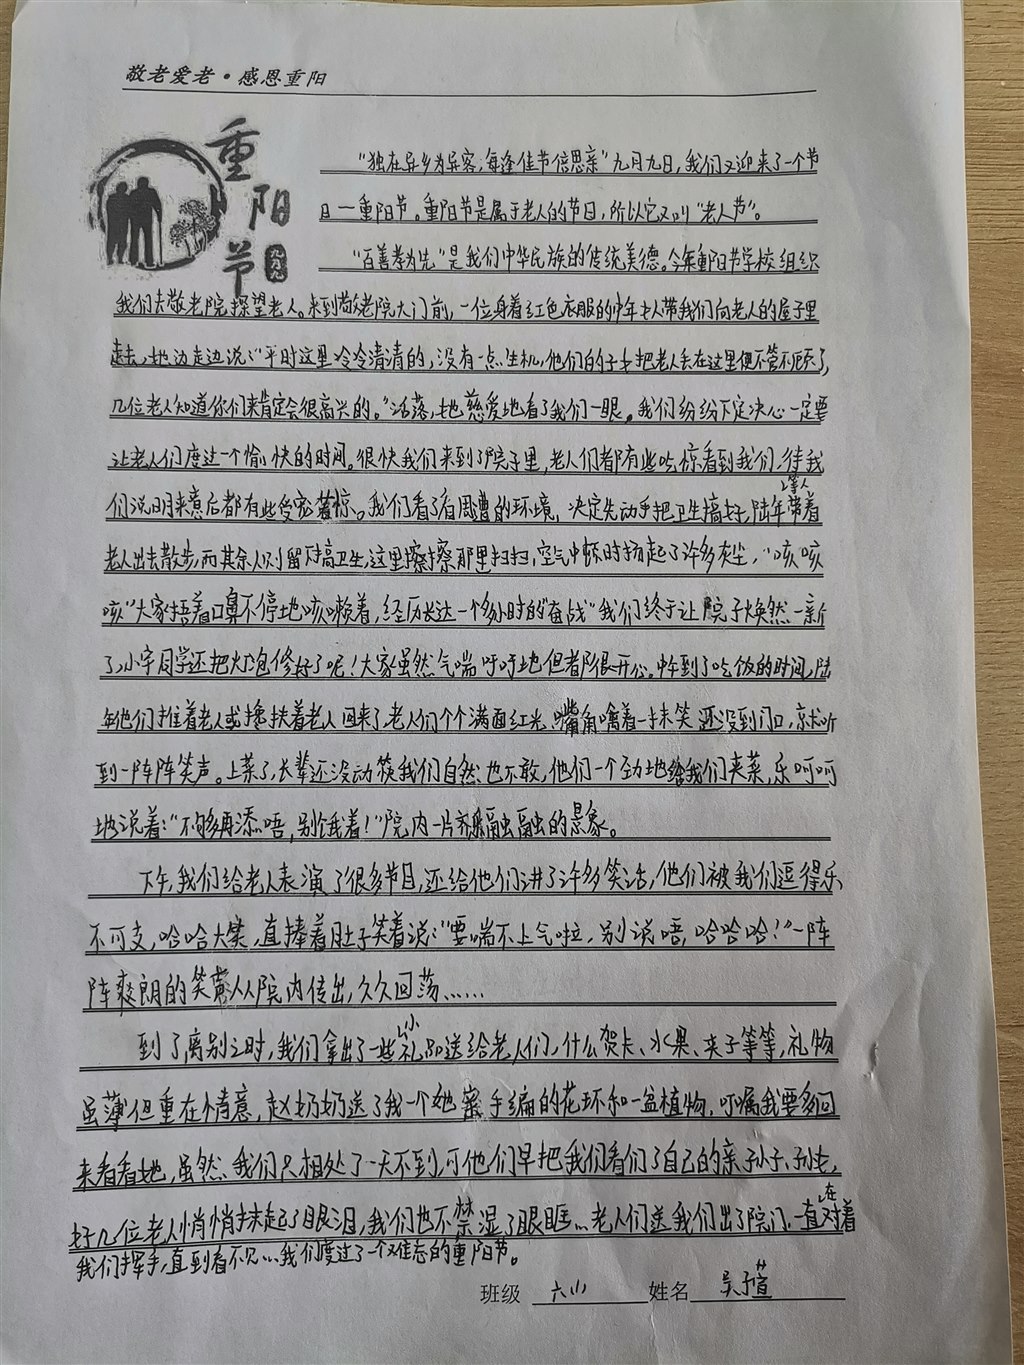 敬老爱老·感恩重阳
重阳节
九月九
“独在异乡为异客,每逢佳节倍思亲”九月九日,我们又迎来了一个节
日一重阳节。重阳节是属于老人的节日,所以它又叫“老人节”。
“百善孝为先”是我们中华民族的传统美德。今年重阳节学校组织
我们去敬老院探望老人。来到敬老院大门前,一位身着红色衣服的中年女人带我们向老人的屋子里
走去,她边走边说:“平时这里冷冷清清的,没有一点生机,他们的子女把老人丢在这里便不管不顾了,
几位老人知道你们来肯定会很高兴的。”话落,她慈爱地看了我们一眼。我们纷纷下定决心一定要
让老人们度过一个愉快的时间。很快我们来到了院子里,老人们都有些吃惊看到我们,待我
们说明来意后都有些受宠若惊。我们看了看周遭的环境,决定先动手把卫生搞好,陆年等人带着
老人出去散步,而其余人则留下搞卫生,这里擦擦那里扫扫,空气中顿时扬起了许多灰尘,“咳咳
咳”大家捂着口鼻不停地咳嗽着,经历长达一个多小时的“奋战”我们终于让院子焕然一新
了,小宇同学还把灯泡修好了呢!大家虽然气喘吁吁地但都很开心。中午到了吃饭的时间,陆
年他们推着老人或搀扶着老人回来了,老人们个个满面红光,嘴角噙着一抹笑,还没到门口,就听
到一阵阵笑声。上菜了,长辈还没动筷我们自然也不敢,他们一个劲地给我们夹菜,乐呵呵
地说着:“不够再添唔,别饿着!”院内一片齐乐融融的景象。
下午,我们给老人表演了很多节目,还给他们讲了许多笑话,他们被我们逗得乐
不可支,哈哈大笑,直捧着肚子笑着说:“要喘不上气啦,别说唔,哈哈哈!”一阵
阵爽朗的笑声从院内传出,久久回荡……
到了离别之时,我们拿出了一些小礼品送给老人们,什么贺卡、水果、夹子等等,礼物
虽薄但重在情意,赵奶奶送了我一个她亲手编的花环和一盆植物,叮嘱我要多回
来看看她,虽然我们只相处了一天不到,可他们早把我们看们了自己的亲孙子、孙女,
好几位老人悄悄抹起了眼泪,我们也不禁湿了眼眶…老人们送我们出了院门,一直在对着
我们挥手,直到看不见…我们度过了一个难忘的重阳节。
班级 六小 姓名 吴子萱